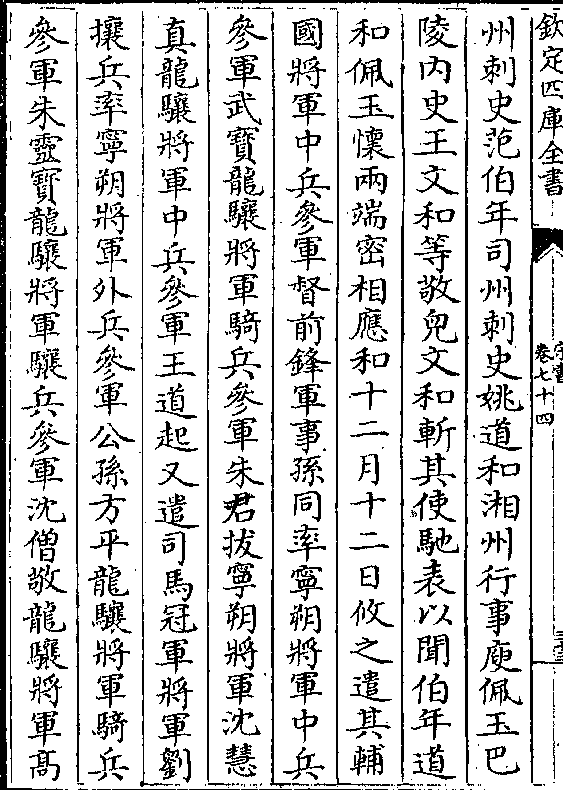 欽定四庫全書
宋書
卷七十四
州刺史范伯年司州刺史姚道和湘州行事庾佩玉巴
陵内史王文和等敬兒文和斬其使馳表以聞伯年道
和佩玉懷兩端密相應和十二月十二日攸之遣其輔
國將軍中兵參軍督前鋒軍事孫同率寧朔將軍中兵
參軍武寶龍驤將軍騎兵參軍朱君拔寧朔將軍沈慧
真龍驤將軍中兵參軍王道起又遣司馬冠軍將軍劉
攘兵率寧朔將軍外兵參軍公孫方平龍驤將軍騎兵
參軍朱靈寶龍驤將軍驤兵參軍沈僧敬龍驤將軍高